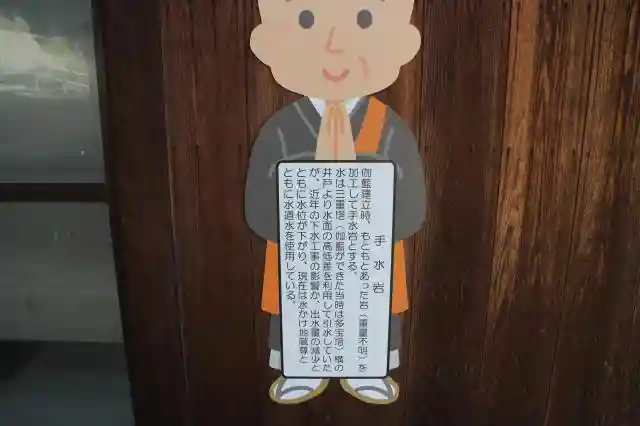 手水岩
伽藍建立時、もともとあった岩（重量不明）を
加工して手水岩とする。
水は三重塔（伽藍ができた当時は多宝塔）横の
井戸より水面の高低差を利用して引水していた
が、近年の下水工事の影響か、出水量の減少と
ともに水位が下がり、現在は水かけ地蔵尊と
ともに水道水を使用している。